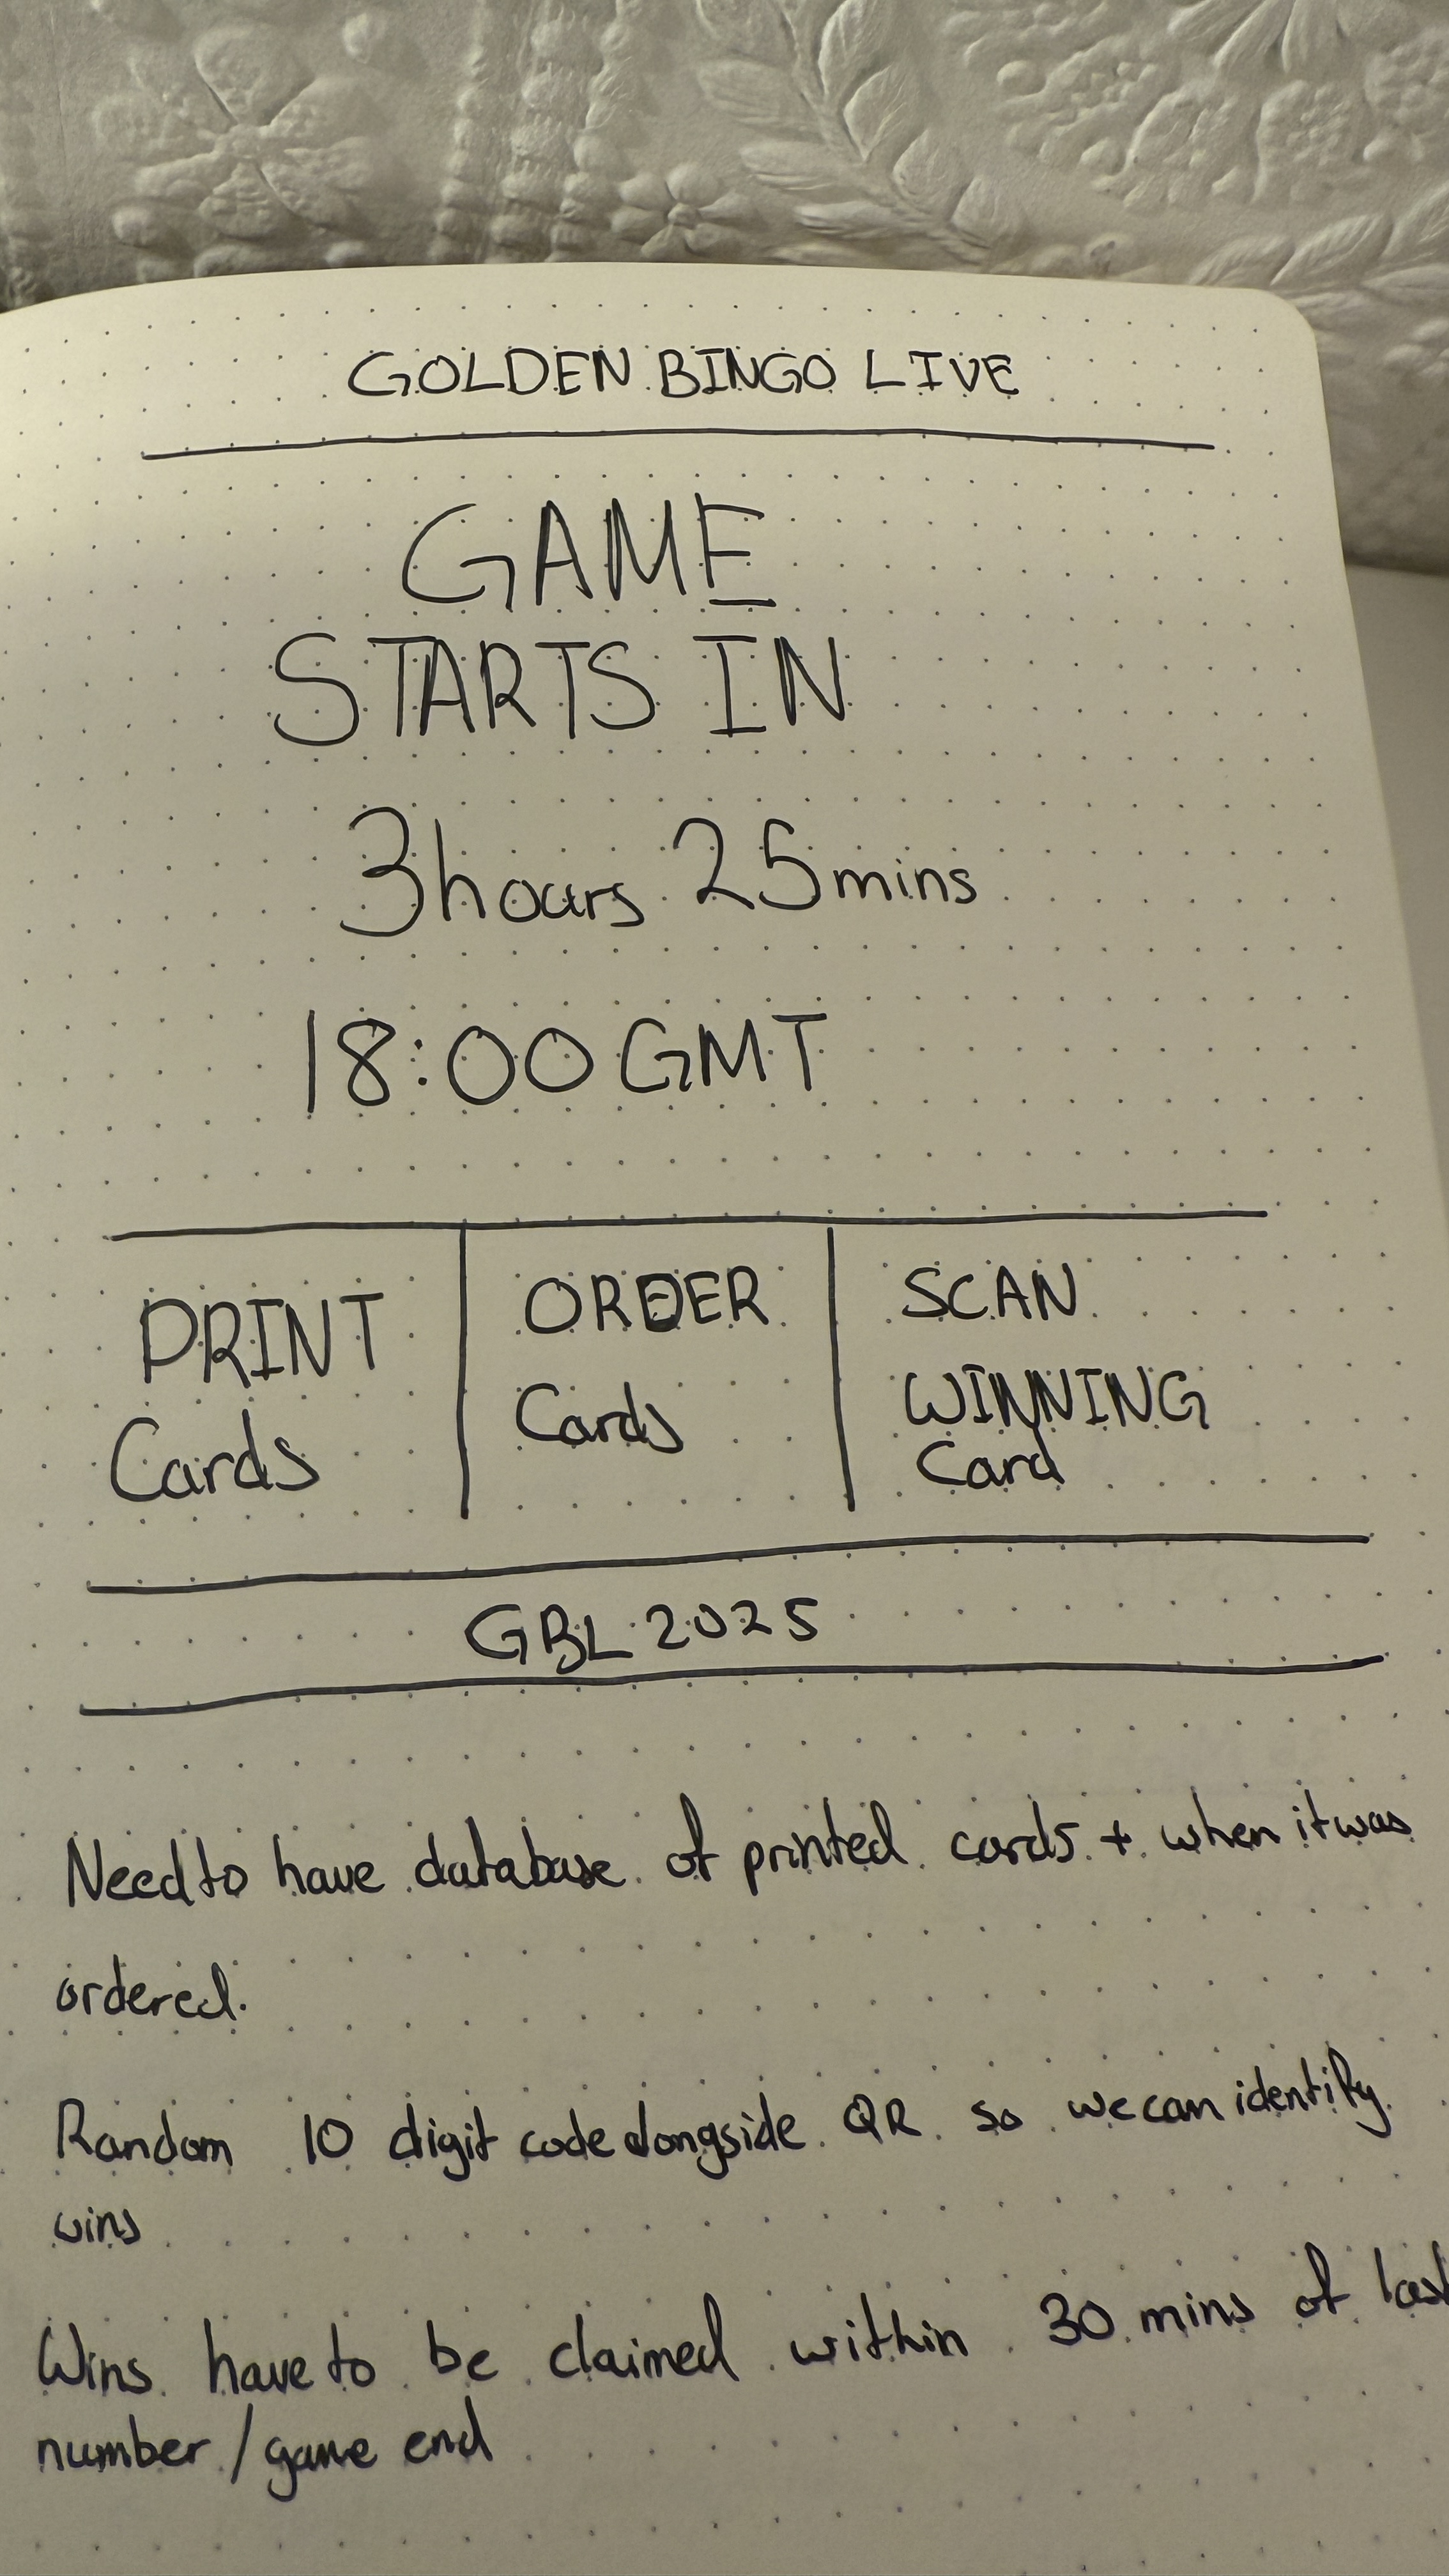 GOLDEN BINGO LIVE
GAME
STARTS IN
3hours 25mins
18:00 GMT
PRINT
Cards
ORDER
Cards
SCAN
WINNING
Card
GBL 2025
Need to have database of printed cards + when it was
ordered.
Random 10 digit code alongside QR so we can identify
wins
Wins have to be claimed within 30 mins of last
number / game end